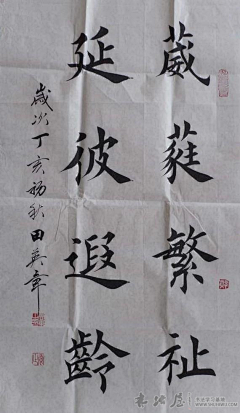 葳蕤繁祉
延彼遐齡
歲次丁亥初秋田英章